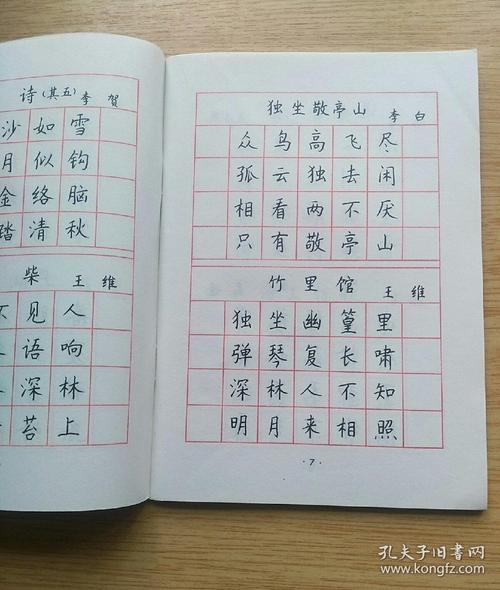 诗(其五) 李贺
沙如雪
月似钩
金络脑
踏清秋
柴 王维
不见人
语响
深林
苔上
独坐敬亭山 李白
众鸟高飞尽
孤云独去闲
相看两不厌
只有敬亭山
竹里馆 王维
独坐幽篁里
弹琴复长啸
深林人不知
明月来相照
·7·
孔夫子旧书网
www.kongfz.com